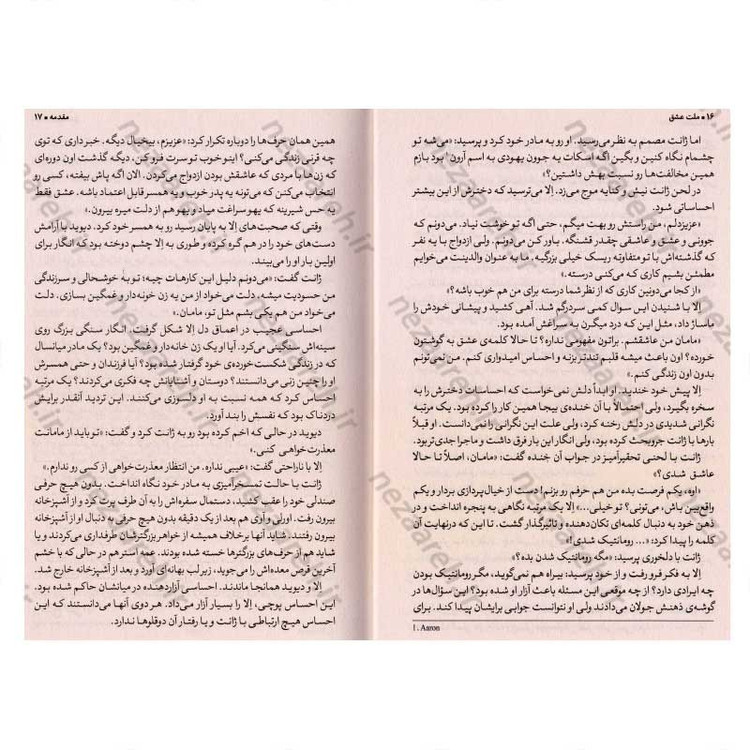 ۱۶ ■ ملت عشق
اما ژانت مصمم به نظر می‌رسید. او رو به مادر خود کرد و پرسید: «می‌شه تو
چشمام نگاه کنین و بگین اگه اسکات یه جوون یهودی به اسم آرون¹ بود بازم
همین مخالفت‌ها رو نسبت بهش داشتین؟»
در لحن ژانت نیش و کنایه موج می‌زد. اِلا می‌ترسید که دخترش از این بیشتر
احساساتی شود.
«عزیزدلم، من راستش رو بهت میگم، حتی اگه تو خوشت نیاد. می‌دونم که
جوونی و عشق و عاشقی چقدر قشنگه. باور کن می‌دونم. ولی ازدواج با یه نفر
که گذشته‌اش با تو متفاوته ریسک خیلی بزرگیه. ما به عنوان والدینت می‌خوایم
مطمئن بشیم کاری که می‌کنی درسته.»
«از کجا می‌دونین کاری که از نظر شما درسته برای من هم خوب باشه؟»
اِلا با شنیدن این سوال کمی سردرگم شد. آهی کشید و پیشانی خودش را
ماساژ داد، مثل این که درد میگرن به سراغش آمده بود.
«مامان من عاشقشم. براتون مفهومی نداره؟ تا حالا کلمه‌ی عشق به گوشتون
خورده؟ اون باعث میشه قلبم تندتر بزنه و احساس امیدواری کنم. من نمی‌تونم
بدون اون زندگی کنم.»
اِلا پیش خود خندید. او ابداً دلش نمی‌خواست که احساسات دخترش را به
سخره بگیرد، ولی احتمالاً با آن خنده‌ی بیجا همین کار را کرده بود. یک مرتبه
نگرانی شدیدی در دلش رخنه کرد، ولی علت این نگرانی را نمی‌دانست. او قبلاً
بارها با ژانت جروبحث کرده بود، ولی انگار این بار فرق داشت و ماجرا جدی‌تر بود.
ژانت با لحنی تحقیرآمیز در جواب آن خنده گفت: «مامان، اصلاً تا حالا
عاشق شدی؟»
«اوه، یکم فرصت بده من هم حرفم رو بزنم! دست از خیال‌پردازی بردار و یکم
واقع‌بین باش، می‌تونی؟ تو خیلی...» اِلا یک مرتبه نگاهی به پنجره انداخت و در
ذهن خود به دنبال کلمه‌ای تکان‌دهنده و تاثیرگذار گشت. تا این که درنهایت آن
کلمه را پیدا کرد: «... رومانتیک شدی!»
ژانت با دلخوری پرسید: «مگه رومانتیک شدن بده؟»
اِلا به فکر فرو رفت و از خود پرسید: بیراه هم نمی‌گوید، مگر رومانتیک بودن
چه ایرادی دارد؟ از چه موقعی این مسئله باعث آزار او شده بود؟ این سؤال‌ها در
گوشه‌ی ذهنش جولان می‌دادند ولی او نتوانست جوابی برایشان پیدا کند. برای
1. Aaron
مقدمه ■ ۱۷
همین همان حرف‌ها را دوباره تکرار کرد: «عزیزم، بیخیال دیگه. خبر داری که توی
چه قرنی زندگی می‌کنی؟ اینو خوب تو سرت فرو کن، دیگه گذشت اون دوره‌ای
که زن‌ها با مردی که عاشقش بودن ازدواج می‌کردن. الان اگه پاش بیفته، کسی رو
انتخاب می‌کنن که می‌تونه یه پدر خوب و یه همسر قابل اعتماد باشه. عشق فقط
یه حس شیرینه که یهو سراغت میاد و یهو هم از دلت میره بیرون.»
وقتی که صحبت‌های اِلا به پایان رسید رو به همسر خود کرد. دیوید با آرامش
دست‌های خود را در هم گره کرده و طوری به اِلا چشم دوخته بود که انگار برای
اولین بار او را می‌بیند.
ژانت گفت: «می‌دونم دلیل این کارهات چیه؛ تو به خوشحالی و سرزندگی
من حسودیت میشه. دلت می‌خواد از من یه زن خونه‌دار و غمگین بسازی. دلت
می‌خواد من هم یکی بشم مثل تو، مامان.»
احساسی عجیب در اعماق دل اِلا شکل گرفت. انگار سنگی بزرگ روی
سینه‌اش سنگینی می‌کرد. آیا او یک زن خانه‌دار و غمگین بود؟ یک مادر میانسال
که در زندگی شکست‌خورده‌ی خود گرفتار شده بود؟ آیا فرزندان و حتی همسرش
او را چنین زنی می‌دانستند؟ دوستان و آشنایانش چه فکری می‌کردند؟ یک مرتبه
احساس کرد که همه نسبت به او دلسوزی می‌کنند. این تردید آنقدر برایش
دردناک بود که نفسش را بند آورد.
دیوید در حالی که اخم کرده بود رو به ژانت کرد و گفت: «تو باید از مامانت
معذرت‌خواهی کنی.»
اِلا با ناراحتی گفت: «عیبی نداره. من انتظار معذرت‌خواهی از کسی رو ندارم.»
ژانت با حالت تمسخرآمیزی به مادر خود نگاه انداخت. بدون هیچ حرفی
صندلی خود را عقب کشید، دستمال سفره‌اش را به آن طرف پرت کرد و از آشپزخانه
بیرون رفت. اورلی و آوی هم بعد از یک دقیقه بدون هیچ حرفی به دنبال او از آشپزخانه
بیرون رفتند. شاید آنها برخلاف همیشه از خواهر بزرگترشان طرفداری می‌کردند و یا
شاید هم از حرف‌های بزرگترها خسته شده بودند. عمه استر هم در حالی که با خشم
آخرین قرص معده‌اش را می‌جوید، زیر لب بهانه‌ای آورد و بعد از آشپزخانه خارج شد.
اِلا و دیوید همانجا ماندند. احساسی آزاردهنده در میانشان حاکم شده بود.
این احساس پوچی، اِلا را بسیار آزار می‌داد. هر دوی آنها می‌دانستند که این
احساس هیچ ارتباطی با ژانت و یا رفتار آن دوقلوها ندارد.
nezaareh.ir